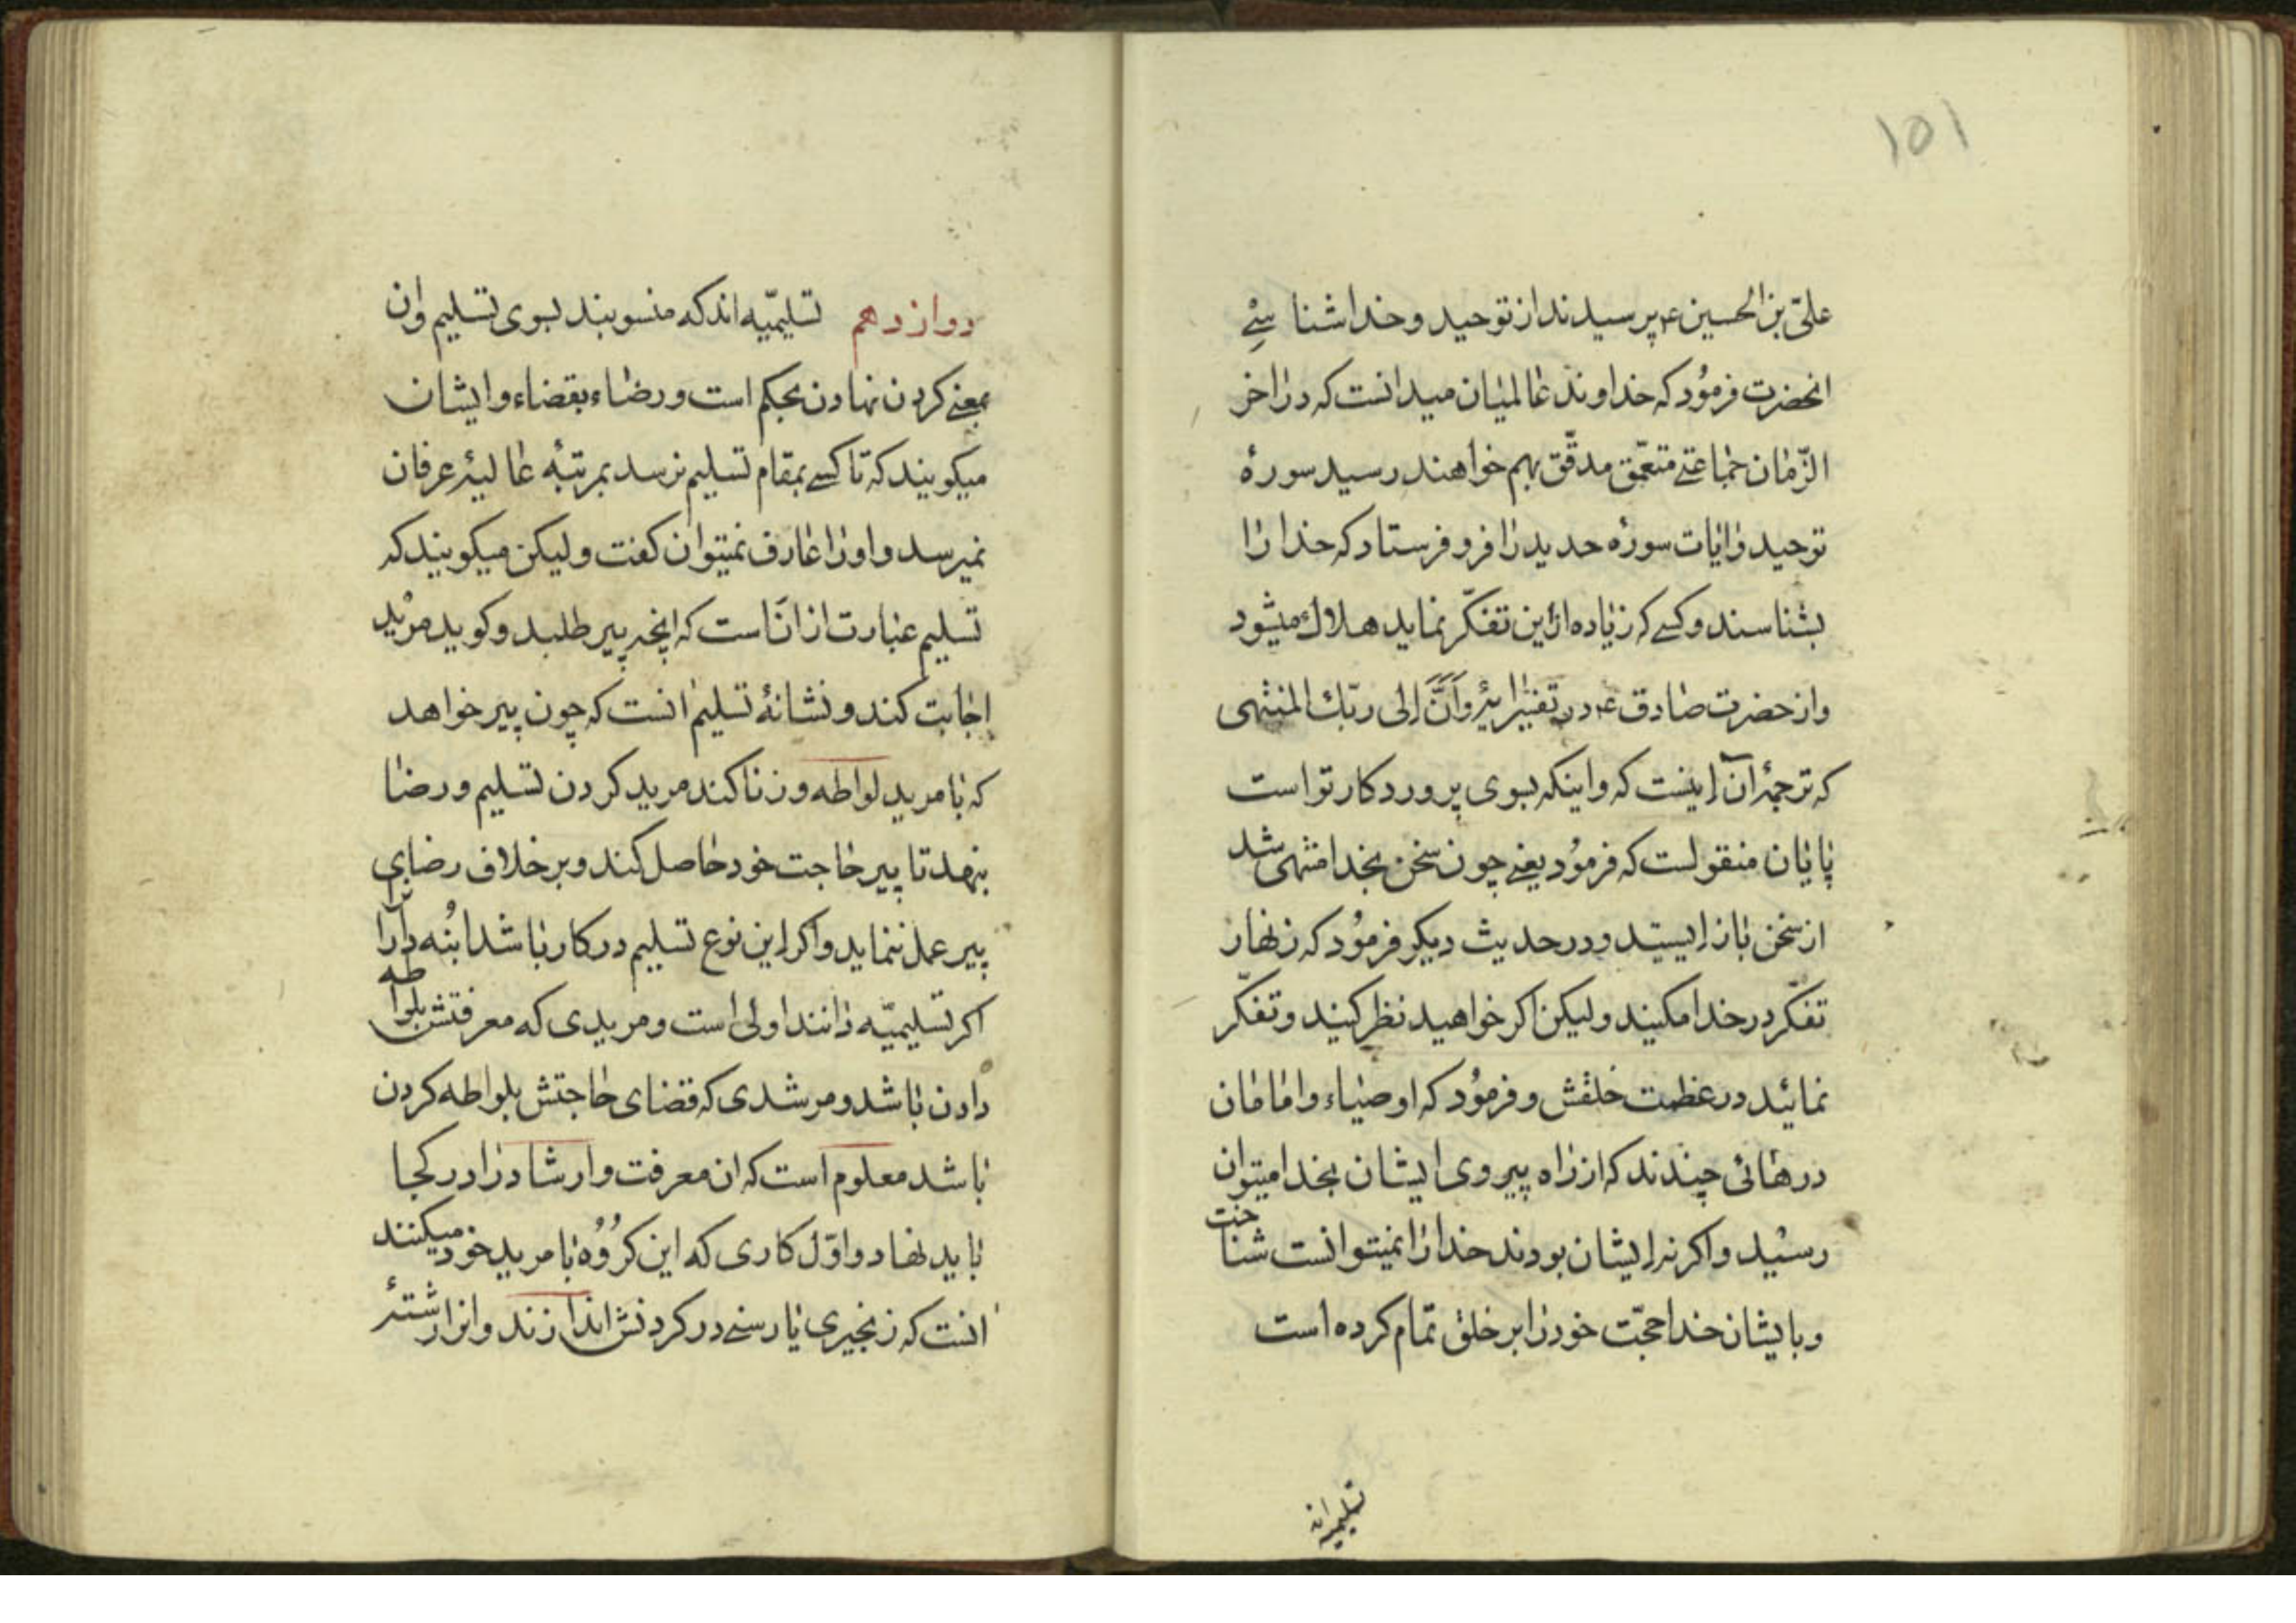 ۱۵۱
علیّ بن الحسین ع پرسیدند از توحید و خدا شناسئے
انحضرت فرمُود که خداوند عالمیان میدانست که در اخر
الزّمان جماعتے متعمّق مدقّق بهم خواهند رسید سورۀ
توحید و ایات سورۀ حدید را فرو فرستاد که خدا را
بشناسند و کسے که زیاده از این تفکّر نماید هلاك میشود
و از حضرت صادق ع در تفسیر ایۀ وَاَنَّ اِلی ربّك المنتهی
که ترجمۀ آن اینست که و اینکه بسوی پروردکار تو است
پایان منقولست که فرمُود یعنے چون سخن بخدا منتهی شد
از سخن باز ایستید و در حدیث دیکر فرمُود که زنهار
تفکّر در خدا مکنید و لیکن اکر خواهید نظر کنید و تفکّر
نمائید در عظمت خلقش و فرمُود که اوصیاء و امامان
درهائی چندند که از راه پیروی ایشان بخدا میتوان
رسید و اکر نه ایشان بودند خدا را نمیتوانست شناخت
و بایشان خدا حجّت خود را بر خلق تمام کرده است
تسلیمیه اند
دوازدهم تسلیمیّه اند که منسوبند بسوی تسلیم و ان
بمعنے کردن نهادن بحکم است و رضاء بقضاء و ایشان
میکویند که تا کسے بمقام تسلیم نرسد بمرتبۀ عالیۀ عرفان
نمیرسد و او را عارف نمیتوان کفت و لیکن میکویند که
تسلیم عبارت از انَاست که انچه پیر طلبد و کوید مرید
اجابت کند و نشانۀ تسلیم انست که چون پیر خواهد
که با مرید لواطه و زنا کند مرید کردن تسلیم و رضا
بنهد تا پیر حاجت خود حاصل کند و بر خلاف رضای
پیر عمل ننماید و اکر این نوع تسلیم در کار باشد اُبنه دارا
اکر تسلیمیّه دانند اولی است و مریدی که معرفتش بلواطه
دادن باشد و مرشدی که قضای حاجتش بلواطه کردن
باشد معلوم است که ان معرفت و ارشاد را در کجا
باید نهاد و اوّل کاری که این کرُوُه با مرید خود میکنند
انست که زنجیری یا رسنے در کردنش اندازند و انرا رشتۀ